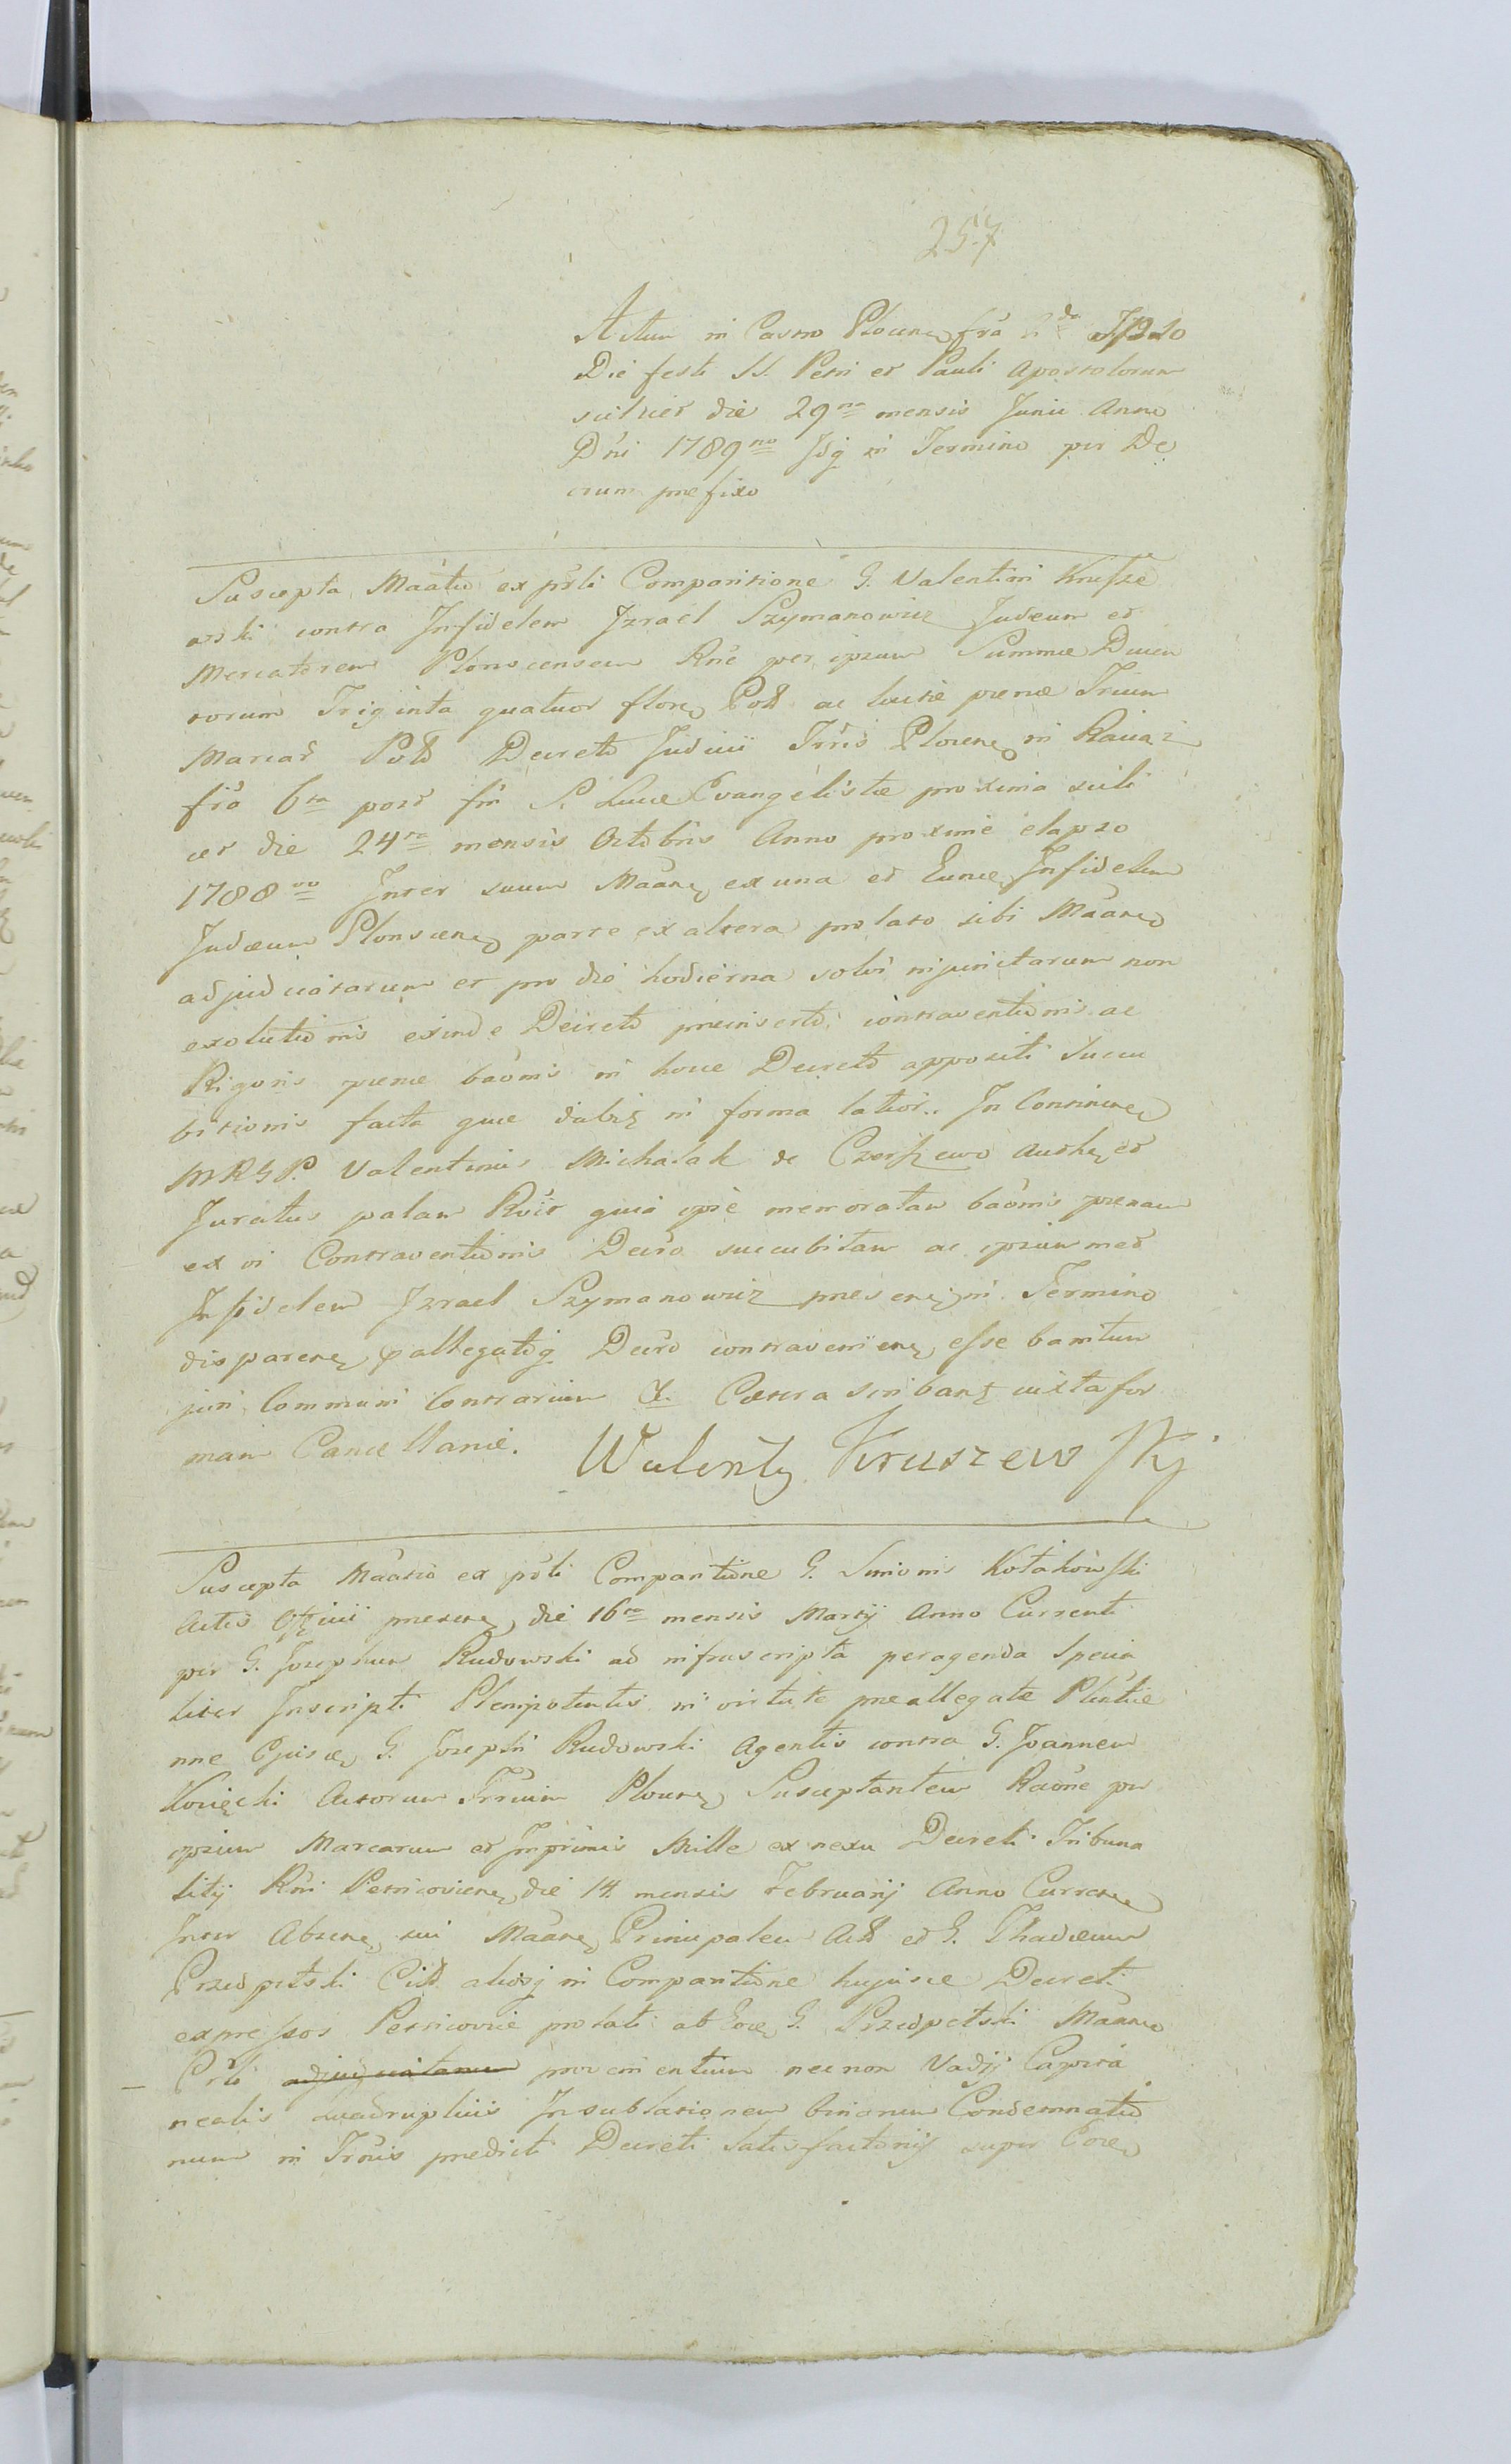 257
Actum in Castro Plocen fria 2da Ipso
Die festi SS. Petri et Pauli Apostolorum
scilicet die 29na mensis Junii Anno
Dni 1789no Idq in Termino per De
crum prefixo
Suscepta Maatio ex psli Comparitione G. Valentini Krusze
wski contra Infidelem Izrael Szymanowicz Judeum et
Mercatorem Plonscensem Rne per ipsum Summæ Ducen
torum Triginta quatuor floren Poll ac luitæ pœnæ Trium
Marcar Poll Decreto Judicii Trris Plocen in Raciaz
fria 6ta post fm S. Lucæ Evangelistæ proxima scili
cet die 24ta mensis Octobris Anno proxime elapso
1788vo Inter suum Maaneu ex una et Eunde Infidelem
Judæum Plonscen parte ex altera prolato sibi Maaneo
adjudicatarum et pro die hodierna solvi injunctarum non
exolutionis exinde Decreto præinserto contraventionis ac
Rigoris pœnæ baonis in hocce Decreto appositi Succu
bitionis facta quæ dabitur in forma latior.. In Continen
MRSP. Valentinus Michalak de Czerszewo Authen et
Juratus palam Rcit quia ipse memoratam baonis pœnam
ex vi Contraventionis Decro succubitam ac ipsummet
Infidelem Izrael Szymanowicz presen in Termino
disparen pallegatoq Decro contravenien esse banitum
juri Communi Contrarium &. Cætera scribantur iuxta for
mam Cancellariæ. Walenty Kruszewski
Suscepta Maatio ex psli Comparitione G. Simonis Kołakowski
Actis Officii presen, die 16ta mensis Martij Anno Currenti
per G. Josephum Rudowski ad infrascripta peragenda Specia
liter Inscripti Plenipotentis in virtute preallegatæ Plentiæ
nne Ejusce G. Josephi Rudowski Agentis contra G. Joannem
Kosięcki Actorum Trrium Plocen Susceptantem Raone per
ipsum Marcarum et Imprimis Mille ex nexu Decreti Tribuna
litij Rni Petricovien die 14. mensis Februarij Anno Curren
Inter Absen sui Maane Principalem Act et G. Thadæum
Przedpełski Cit aliosq in Comparitione hujusce Decreti
expressos Petricoviæ prolati ab Eoe G. Przedpełski Maaneo
Crli adjudicatarum provenientium necnon Vadji Capita
nealis quadruplicis Insublationem binarum Condemnatio
num in Trnis predicti Decreti Satisfactoriis super Eoe